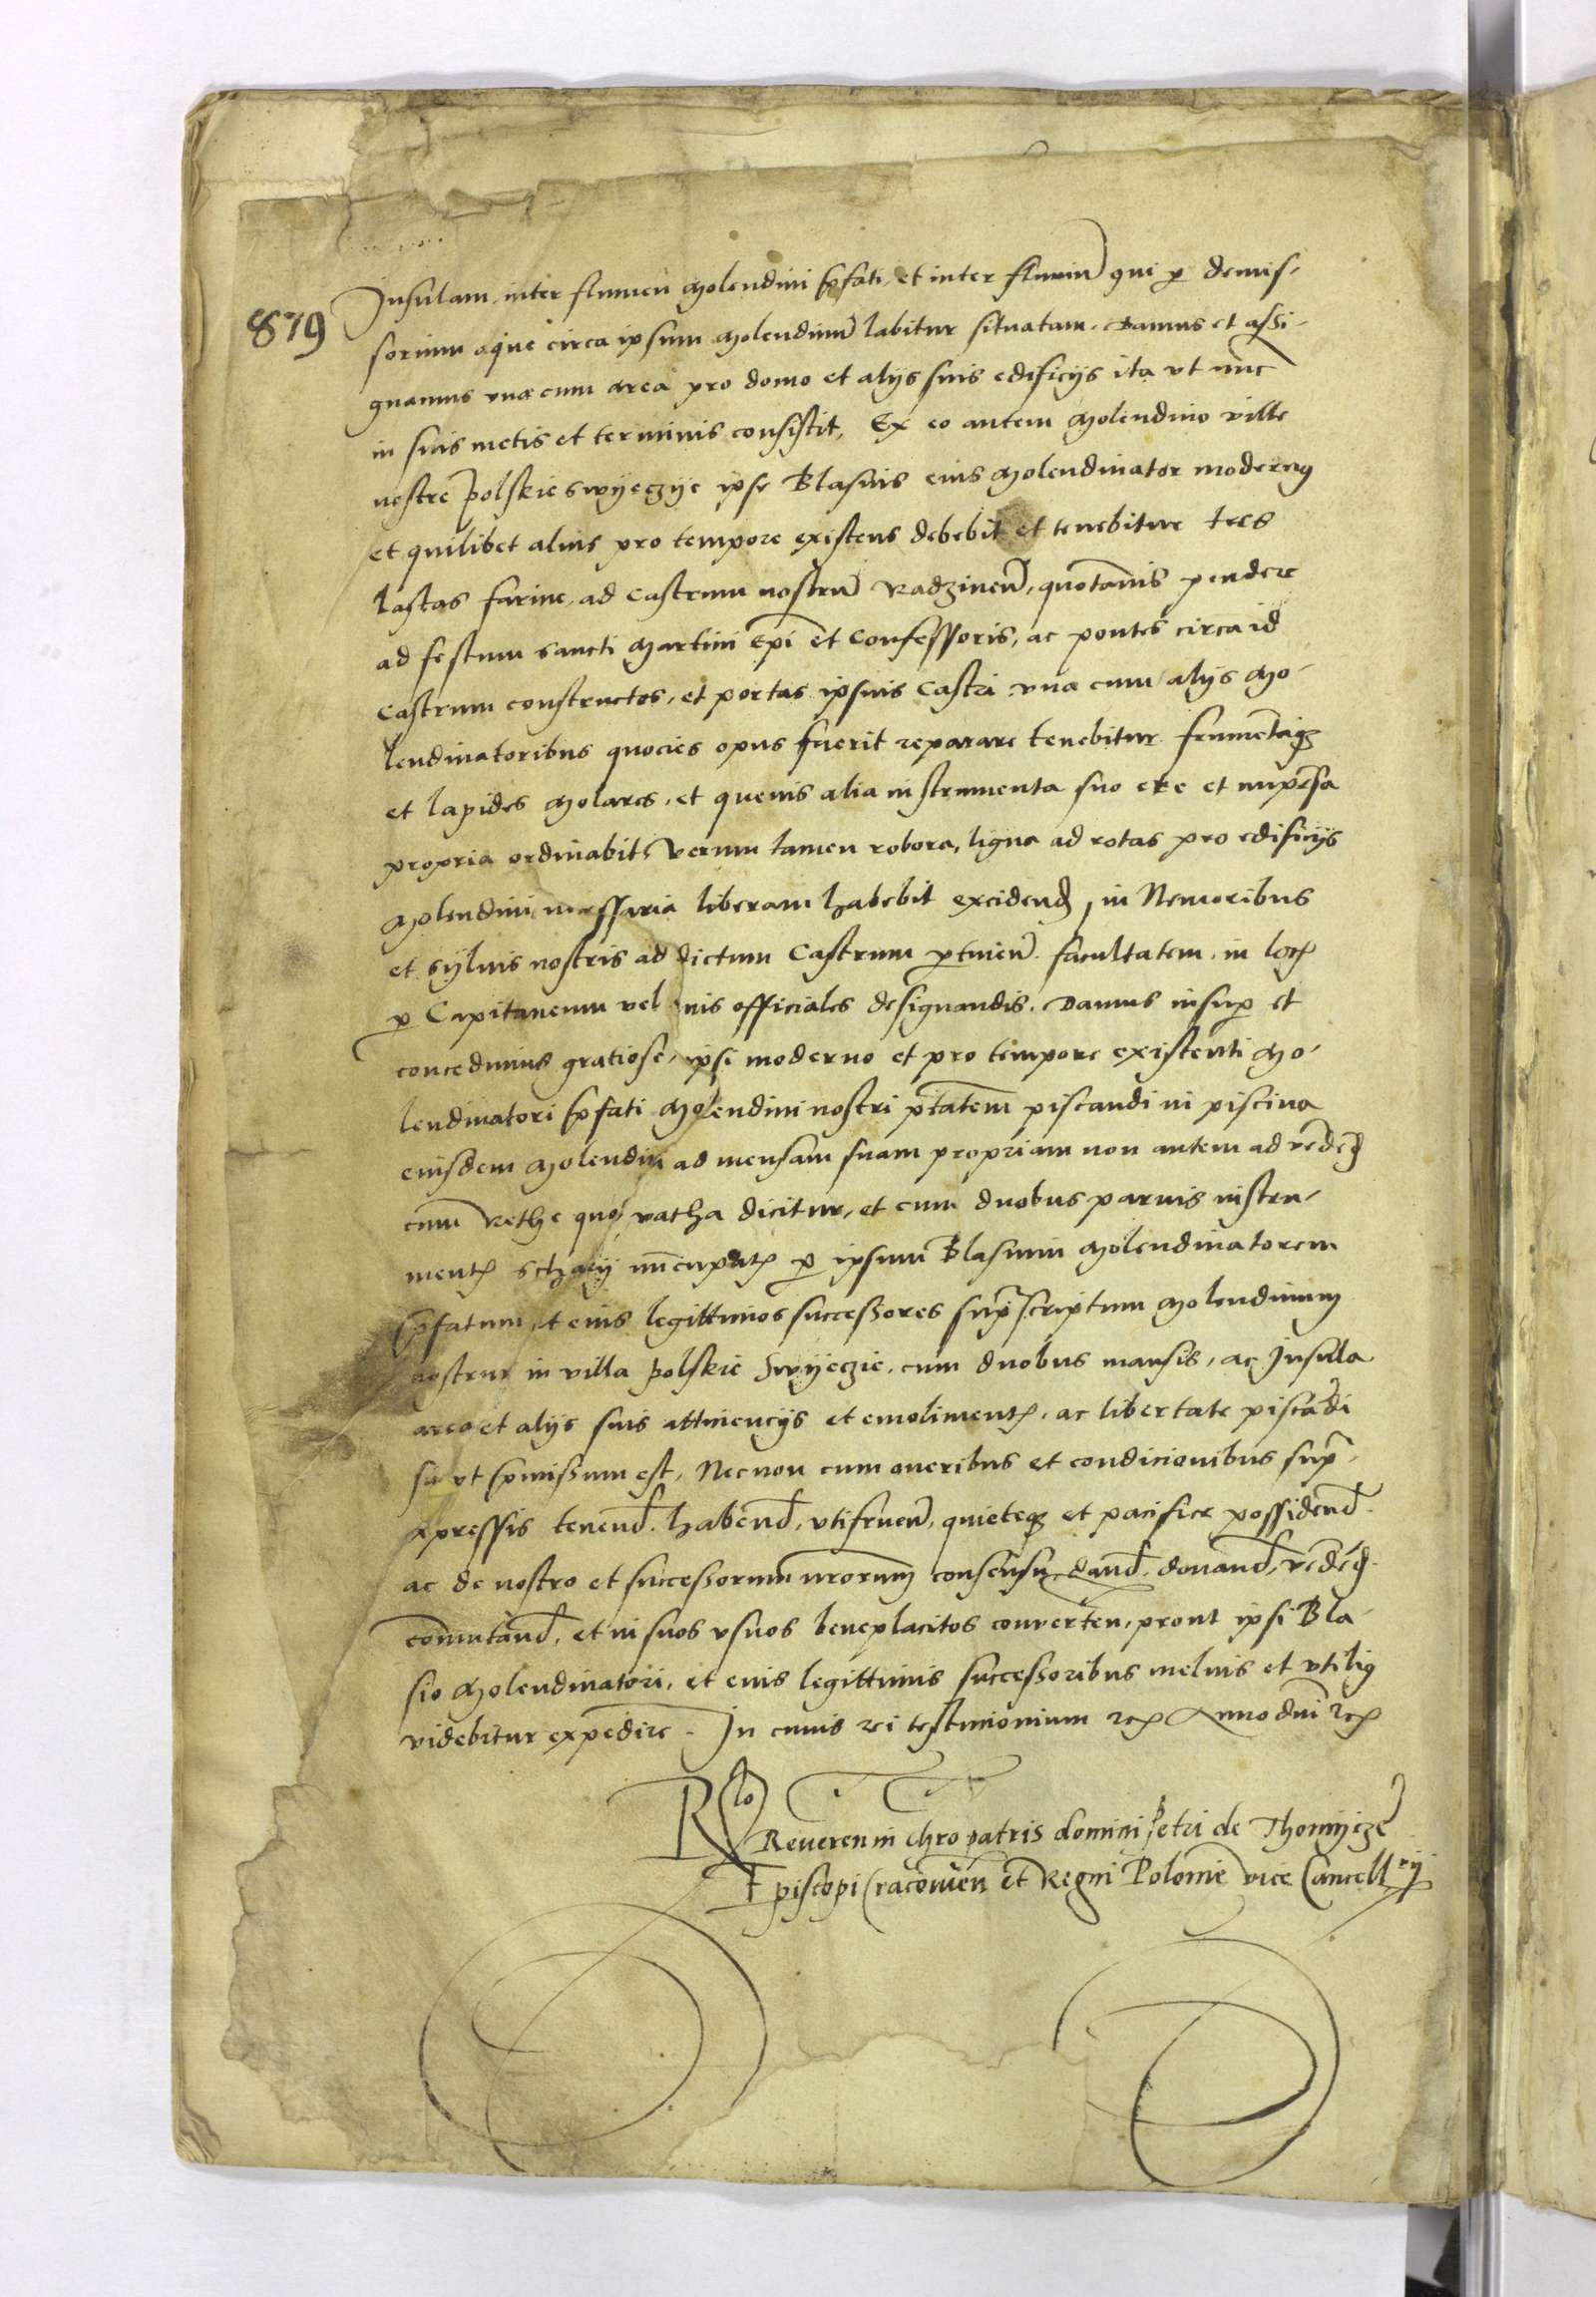 879
Insulam inter flumen Molendini p̄fati, et inter fluviū qui p demis-
sorium aque circa ipsum Molendinū labitur situatam. Damus et assi-
gnamus una cum area pro domo et alijs suis edificijs ita ut nūc
in suis metis et terminis consistit, Ex eo autem Molendino ville
nostre Polskie Swyeczye ipse Blasius eius Molendinator modernꝰ
et quilibet alius pro tempore existens debebit et tenebitur tres
lastas farine, ad Castrum nostrū Radzinen̄, quotannis pendere
ad festum sancti Martini Ep̄i et Confessoris, ac pontes circa id
Castrum constructos, et portas ipsius Castri una cum alijs Mo-
lendinatoribus quocies opus fuerit reparare tenebitur frumētaqꝫ
et lapides Molares, et quevis alia instrumenta suo ere et impēsa
propria ordinabit, Verum tamen robora, ligna ad rotas pro edificijs
Molendini necessaria liberam habebit excidend̄, in Nemoribus
et sylvis nostris ad dictum Castrum ꝑtinen̄. facultatem, in locꝭ
ꝑ Capitaneum vel eius officiales designandis. Damus insuꝑ et
concedimus gratiose, ipsi moderno et pro tempore existenti Mo-
lendinatori p̄fati Molendini nostri ptātem piscandi in piscina
eiusdem Molendini ad mensam suam propriam non autem ad vēdēd̄
cum Rethe quod vatha dicitur, et cum duobus parvis instru-
mentꝭ nūcupatꝭ ꝑ ipsum Blasium Molendinatorem
p̄fatum, et eius legittimos successores suprascriptum Molendinum
nostrum in villa Polskie Swyeczie, cum duobus mansis, ac Insula
area et alijs suis attinencijs et emolimentꝭ, ac libertate piscādi
sicut p̄missum est, Necnon cum oneribus et condicionibus supra
expressis tenend̄. habend̄, utifruen̄, quieteqꝫ et pacifice possidend̄
ac de nostro et successorum n̄rorum consensu, dand̄. donand̄, vēdēd̄.
com̄utand̄, et in suos usuos beneplacitos converten, prout ipsi Bla-
sio Molendinatori, et eius legittimis successoribus melius et utiliꝰ
videbitur expedire. In cuius rei testimonium rcꝭ Anno dn̄i rcꝭ
R(lo)
Reveren in Chro patris domini Petri de Thomijczē
Episcopi Cracovien̄ et Regni Polonie vice Cancellrij